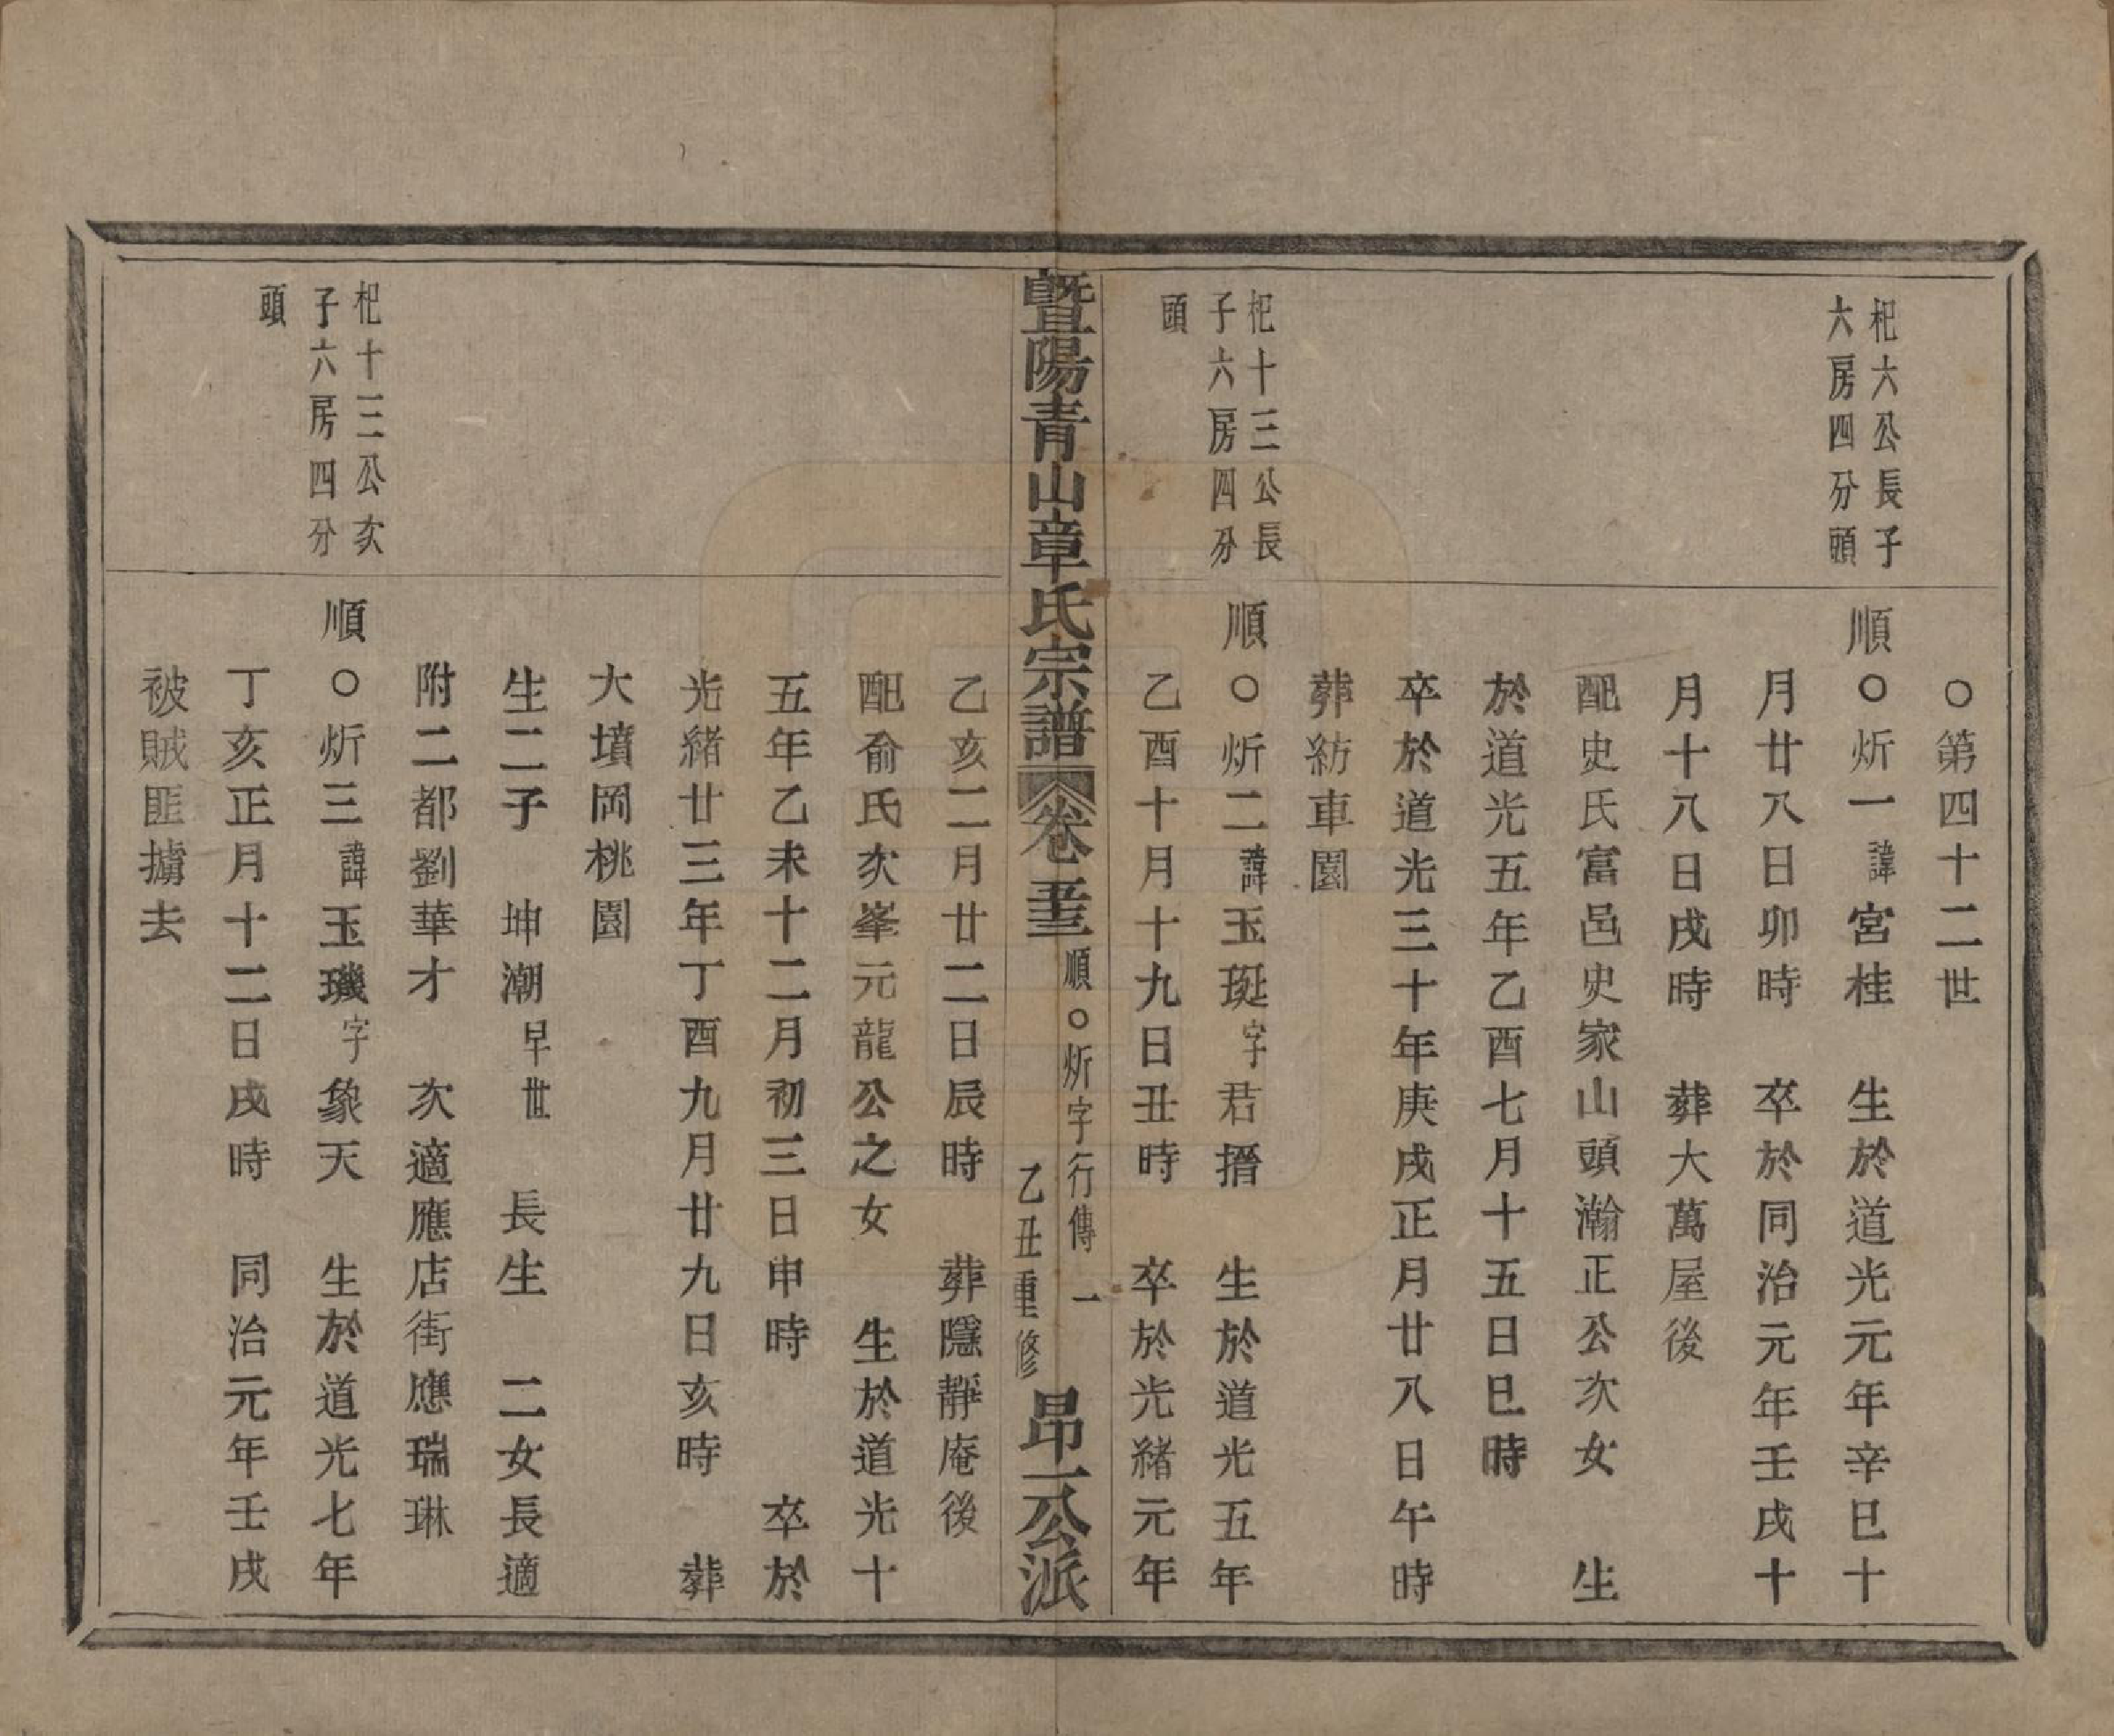 ○第四十二世
杞六公長子
六房四分頭
順○炘一諱宮桂　生於道光元年辛巳十
月廿八日卯時　卒於同治元年壬戌十
月十八日戌時　葬大萬屋後
配史氏富邑史家山頭瀚正公次女　生
於道光五年乙酉七月十五日巳時
卒於道光三十年庚戌正月廿八日午時
葬紡車園
杞十三公長
子六房四分
頭
順○炘二諱玉珽字君搢　生於道光五年
乙酉十月十九日丑時　卒於光緒元年
暨陽青山章氏宗譜　卷　順○炘字行傳　一
乙丑重修　昂一公派
乙亥二月廿二日辰時　葬隱靜庵後
配俞氏次峯元龍公之女　生於道光十
五年乙未十二月初三日申時　卒於
光緒廿三年丁酉九月廿九日亥時　葬
大墳岡桃園
生二子　坤潮早世　長生　二女長適
附二都劉華才　次適應店街應瑞琳
杞十三公次
子六房四分
頭
順○炘三諱玉璣字象天　生於道光七年
丁亥正月十二日戌時　同治元年壬戌
被賊匪擄去